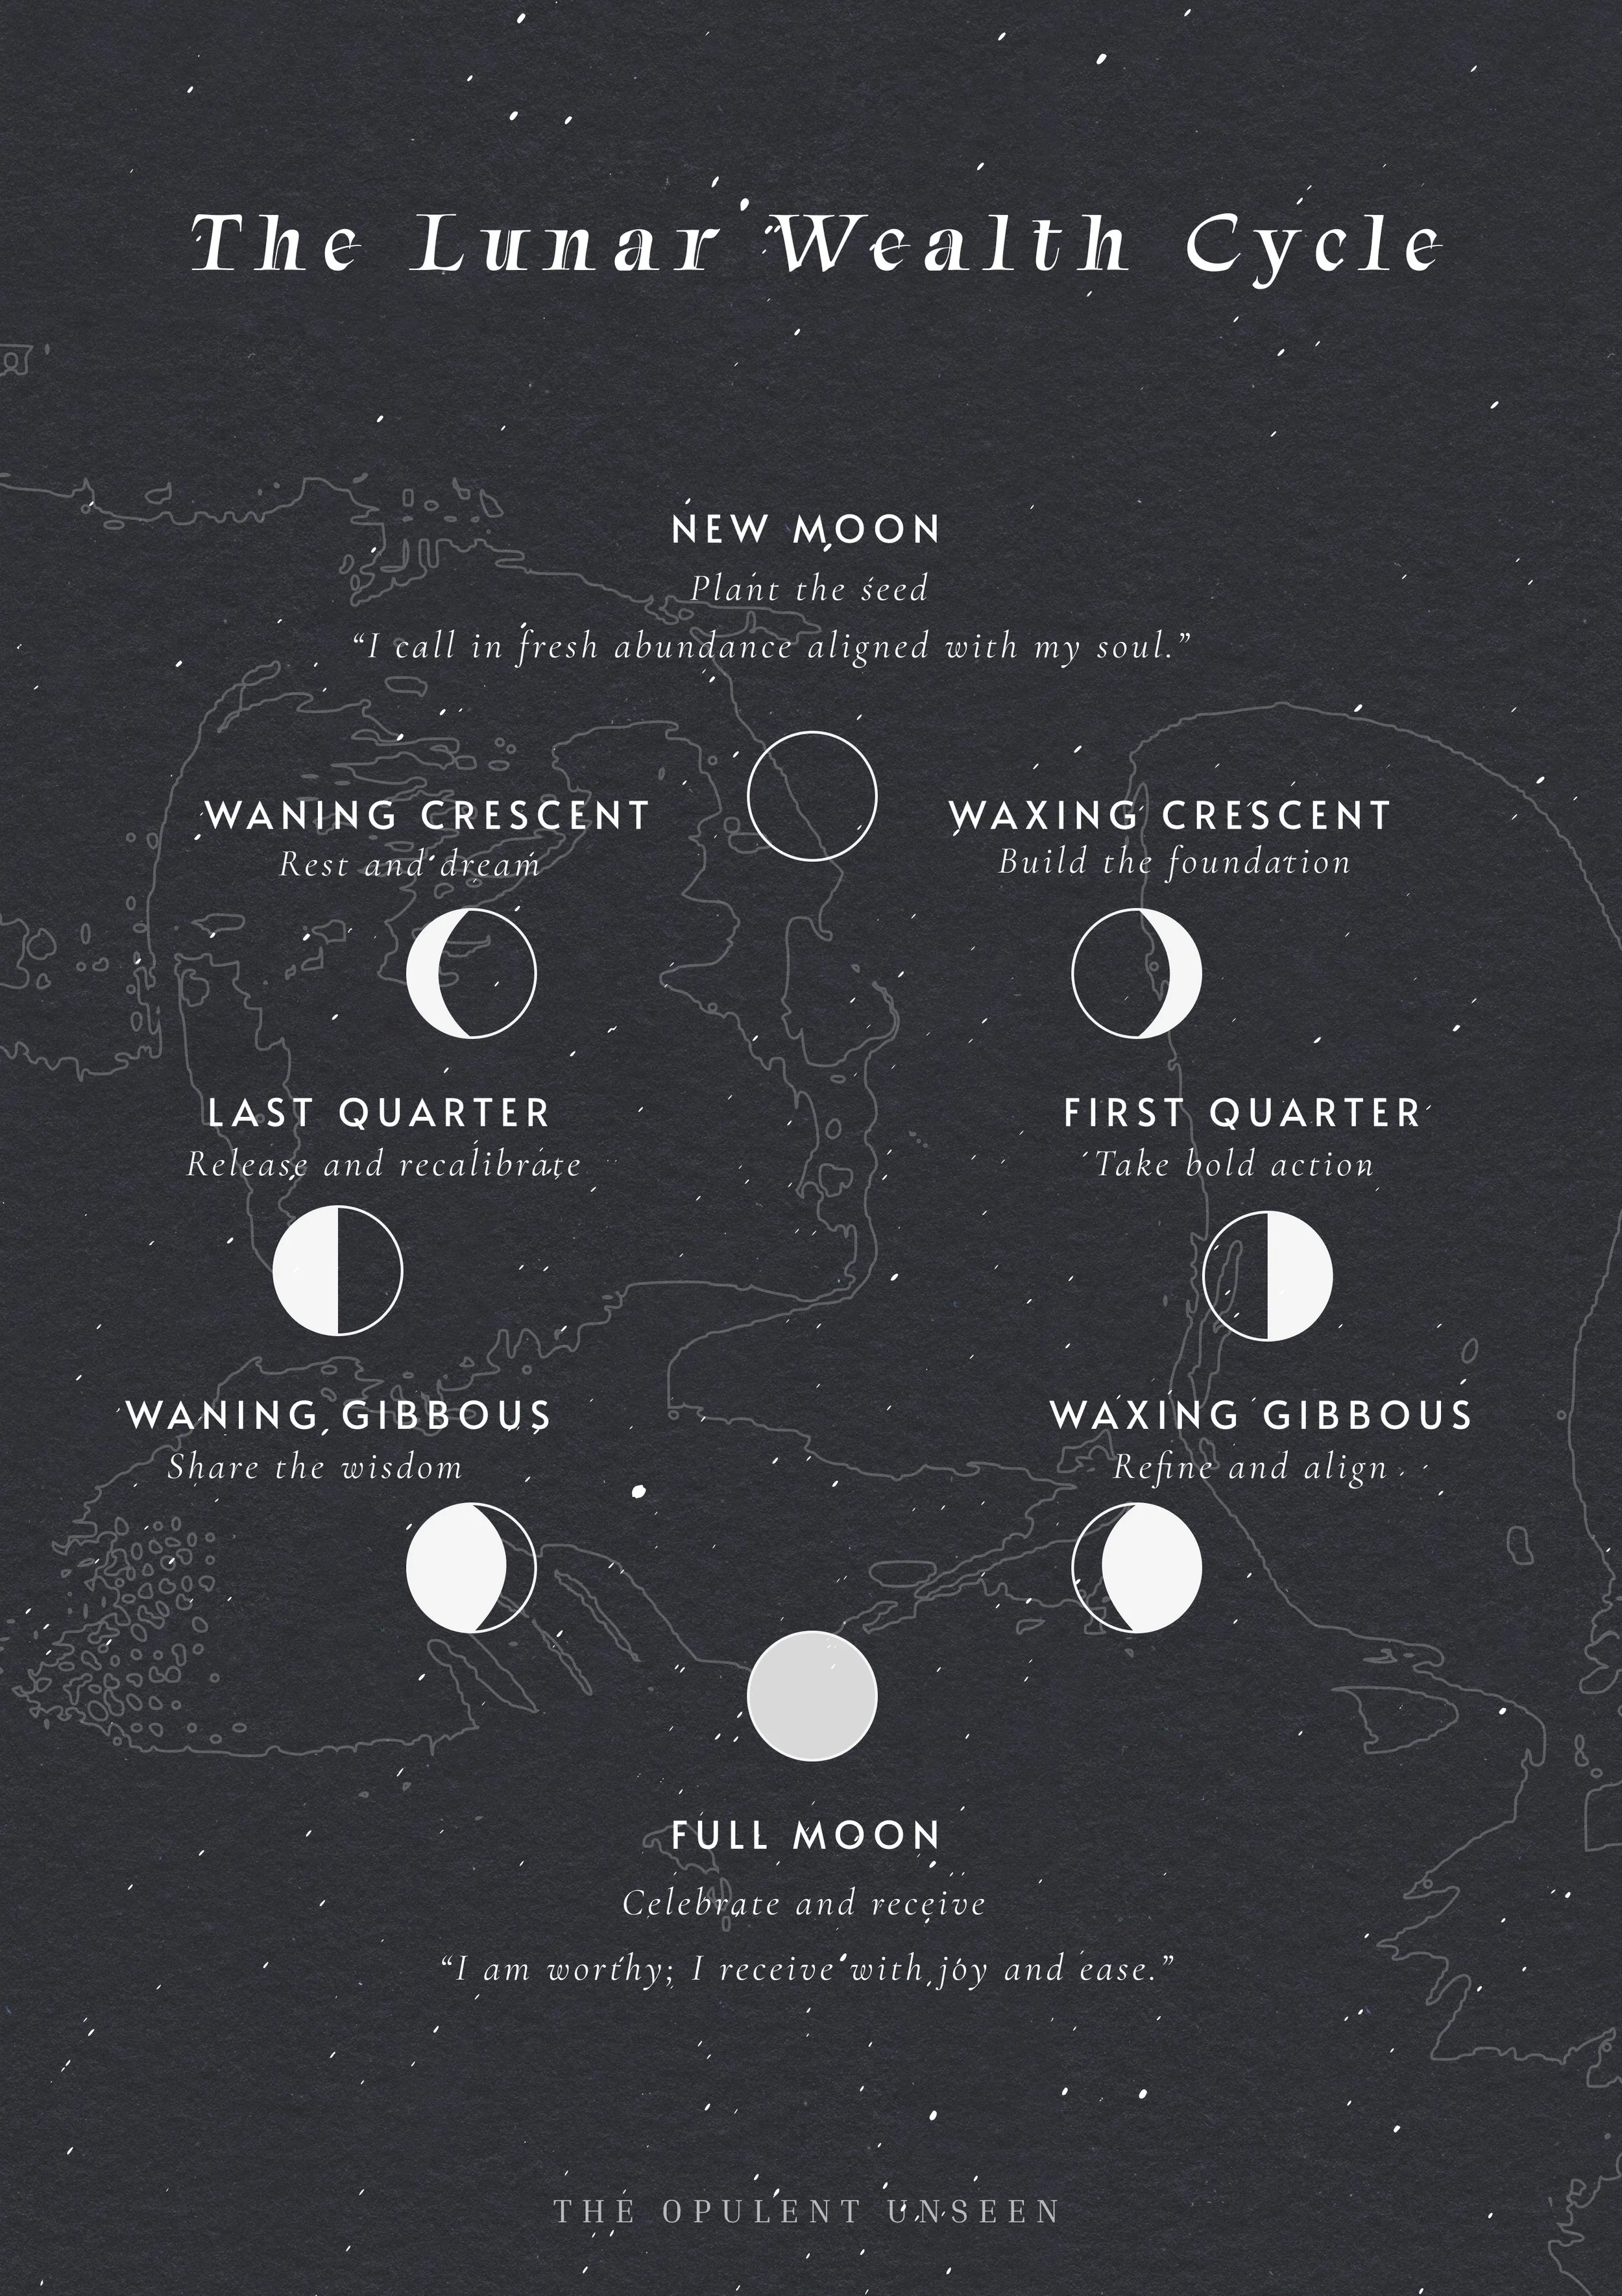 The Lunar Wealth Cycle
NEW MOON
Plant the seed
“I call in fresh abundance aligned with my soul.”
WANING CRESCENT
Rest and dream
WAXING CRESCENT
Build the foundation
LAST QUARTER
Release and recalibrate
FIRST QUARTER
Take bold action
WANING GIBBOUS
Share the wisdom
WAXING GIBBOUS
Refine and align
FULL MOON
Celebrate and receive
“I am worthy; I receive with joy and ease.”
THE OPULENT UNSEEN